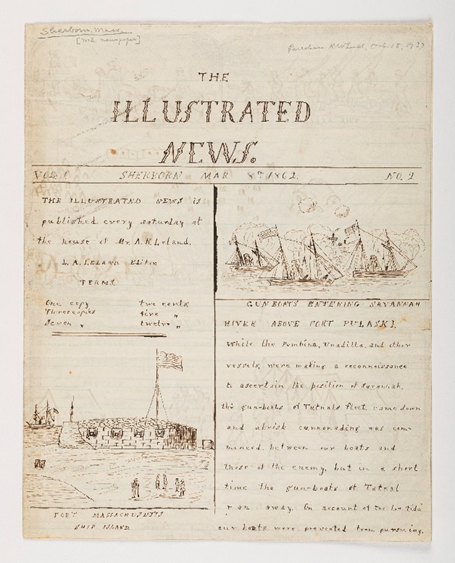 Sherborn, Mass.
[MS. newspaper]
Purchase Oct. 15, 1937
THE
ILLUSTRATED
NEWS.
VOL. 1 SHERBORN MAR 8TH 1862 NO. 2
THE ILLUSTRATED NEWS is
published every saturday at
the house of Mr. A. K. Leland.
L. A. Leland Editor
TERMS.
One copy two cents
Three copies five "
Seven " twelve "
FORT MASSACHUSETTS
SHIP ISLAND
GUNBOATS ENTERING SAVANNAH
RIVER ABOVE FORT PULASKI.
While the Pembina, Unadilla, and other
vessels, were making a reconnoissance
to ascertain the position of Savannah,
the gun-boats of Tatnals fleet came down
and a brisk cannonading was com-
menced between our boats and
those of the enemy, but in a short
time the gun-boats of Tatnal
ran away. On account of the low tide
our boats were prevented from pursuing.